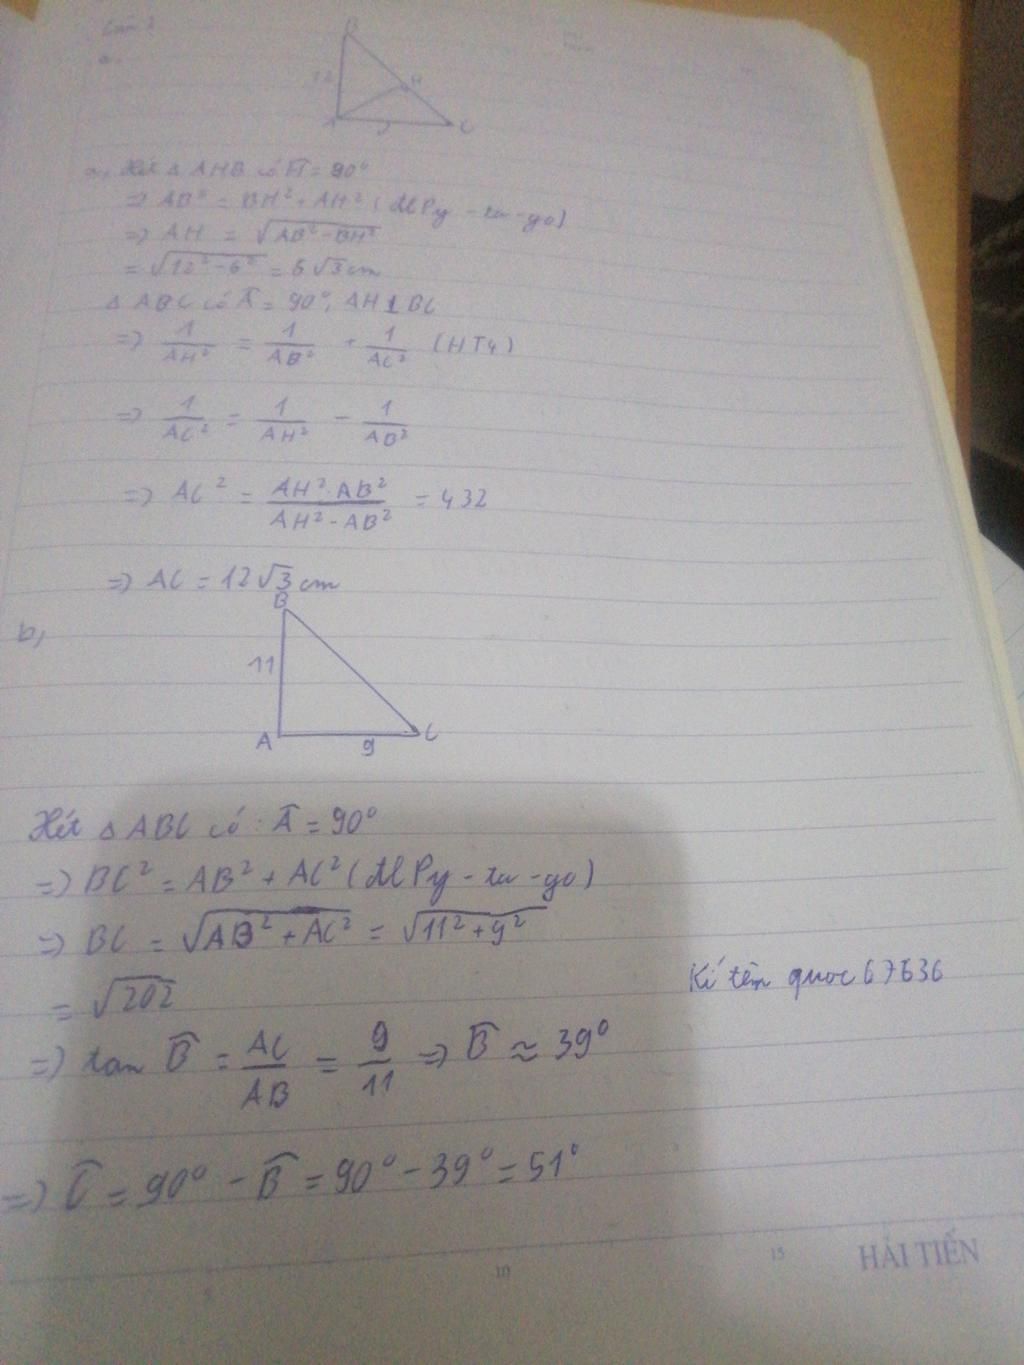 B
12
H
A
C
a, Xét △ AHB có Ĥ = 90°
=> AB² = BH² + AH² (đl Py-ta-go)
=> AH = √(AB² - BH²)
= √(12² - 6²) = 6√3 cm
△ ABC có Â = 90°, AH ⊥ BC
=> 1/AH² = 1/AB² + 1/AC² (HT4)
=> 1/AC² = 1/AH² - 1/AB²
=> AC² = AH² . AB² / AH² - AB² = 432
=> AC = 12√3 cm
b,
B
11
A
9
C
Xét △ ABC có: Â = 90°
=> BC² = AB² + AC² (đl Py-ta-go)
=> BC = √(AB² + AC²) = √(11² + 9²)
= √202
Kí tên quoc67636
=> tan B̂ = AC/AB = 9/11 => B̂ ≈ 39°
=> Ĉ = 90° - B̂ = 90° - 39° = 51°
5
10
15
HẢI TIẾN